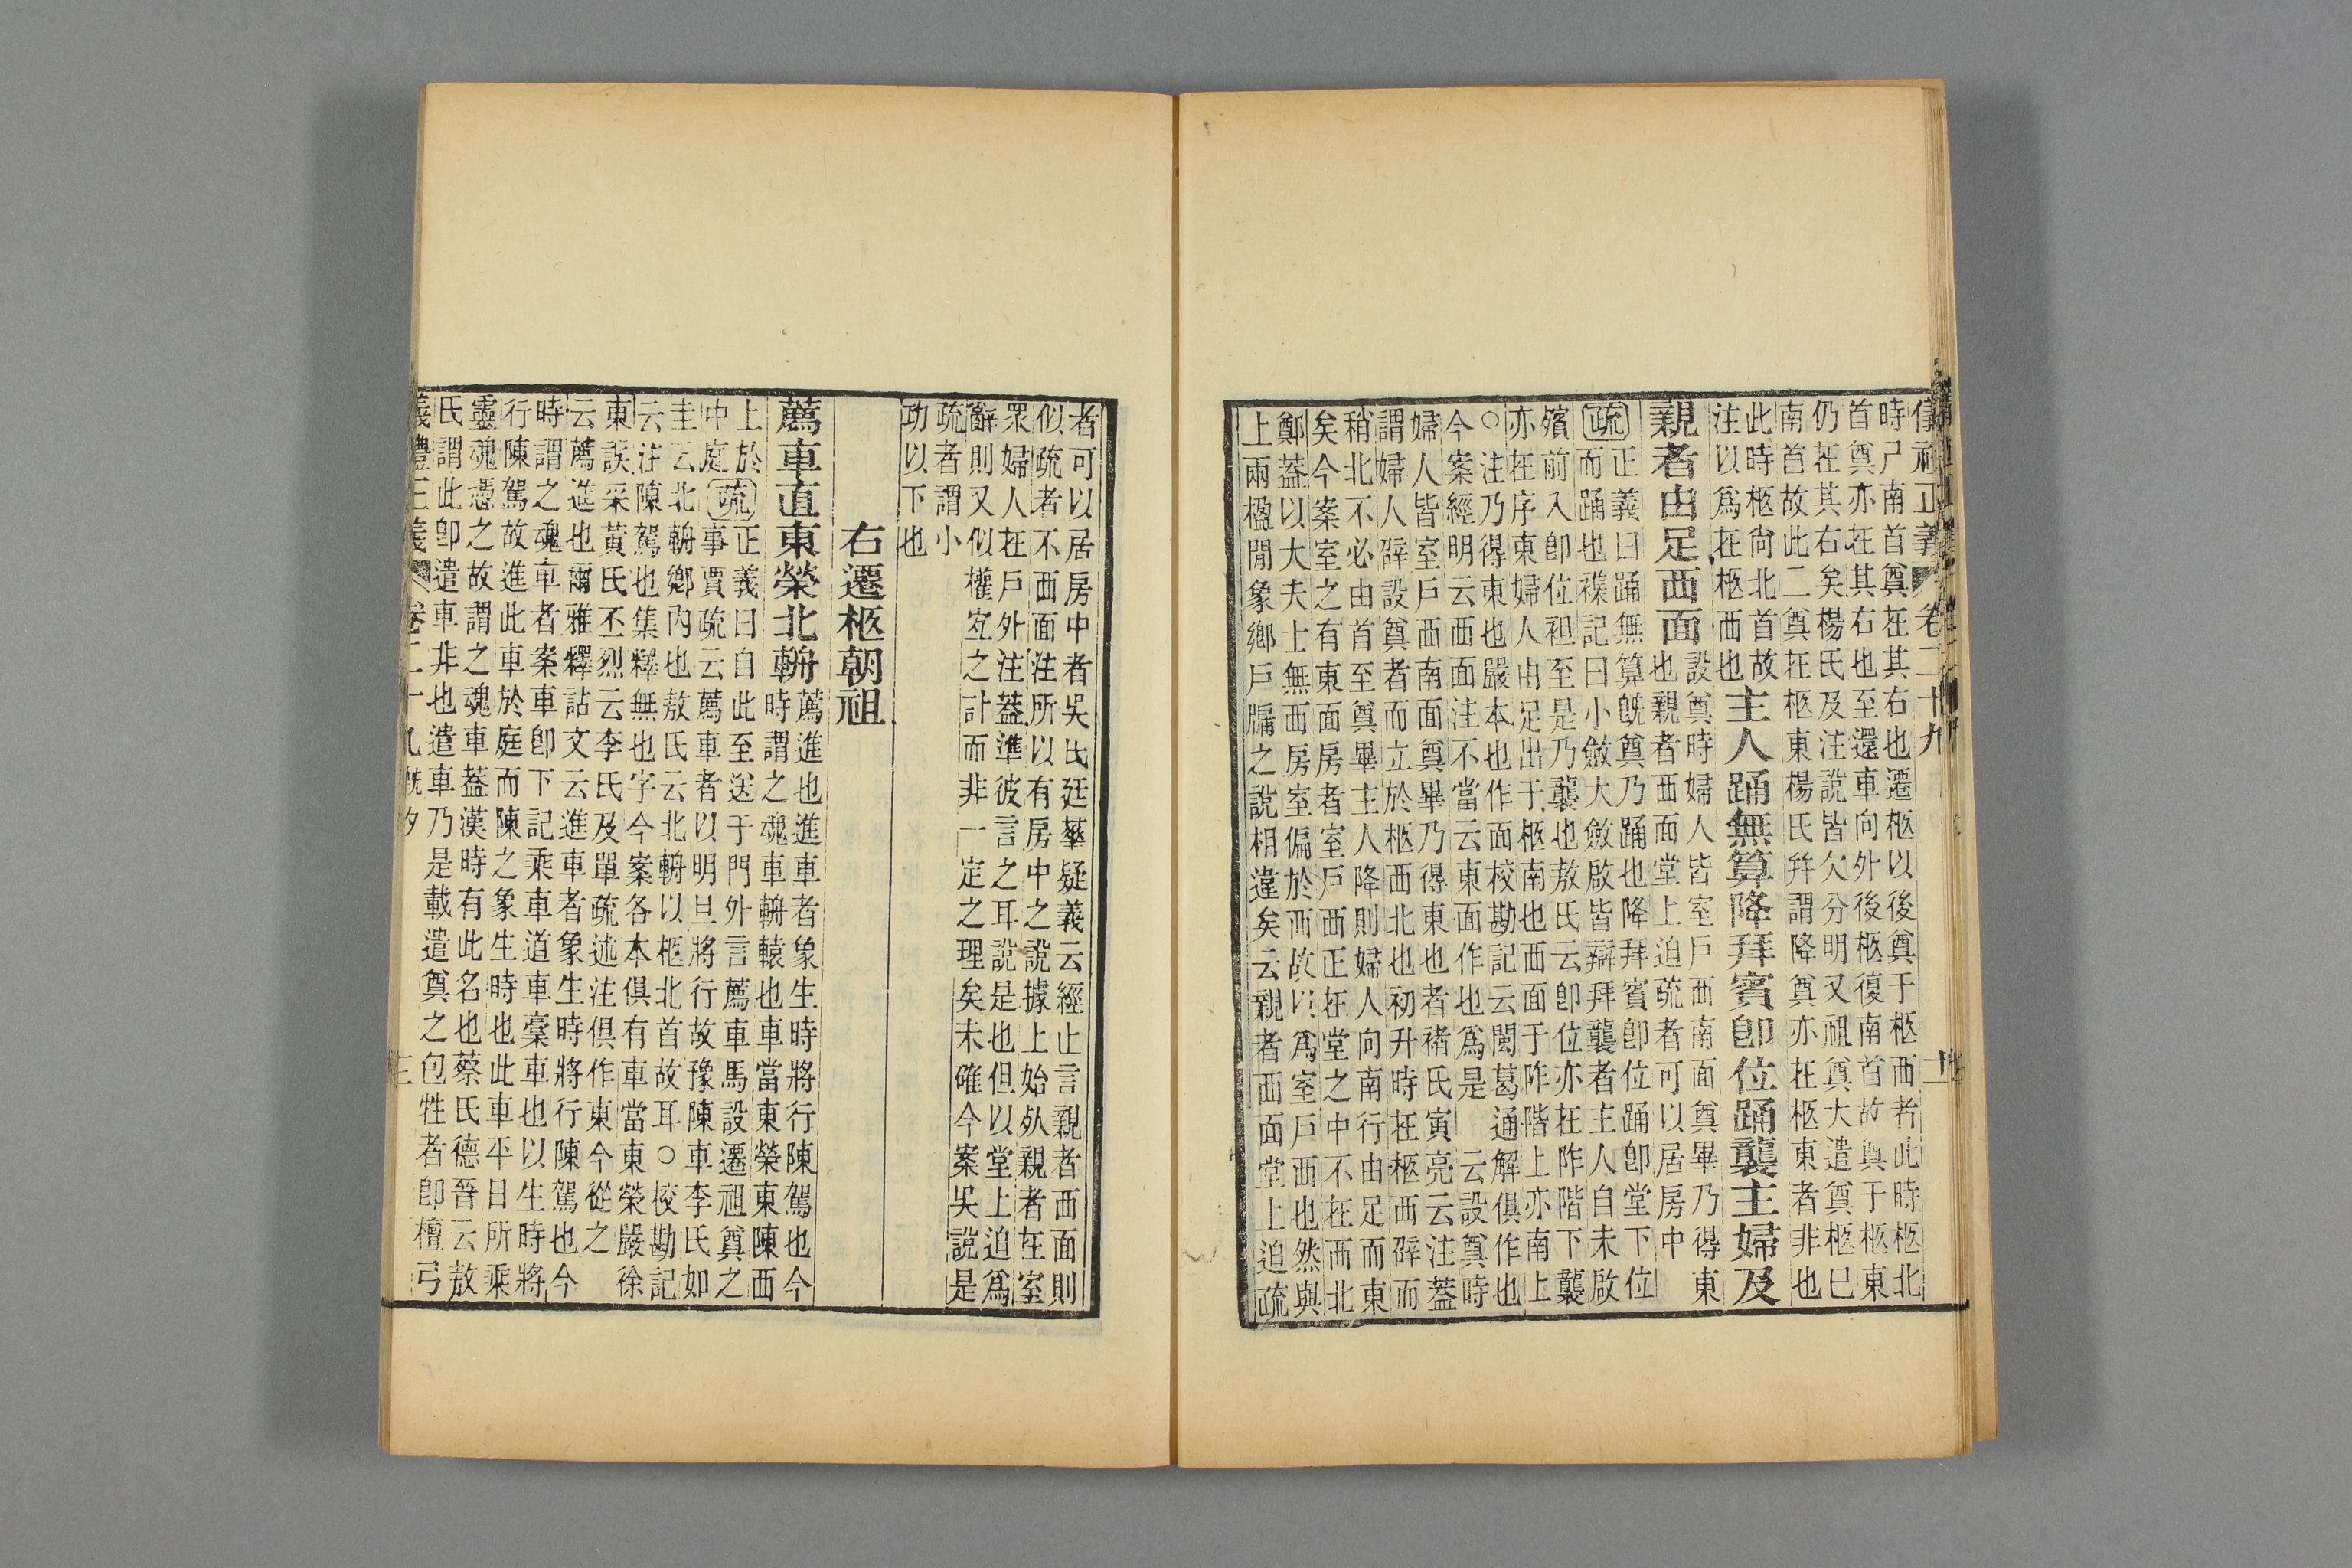 儀禮正義 卷二十九 十二
時尸南首奠在其右也遷柩以後奠于柩西者此時柩北
首奠亦在其右也至還車向外後柩復南首故奠于柩東
仍在其右矣楊氏及注說皆欠分明又祖奠大遣奠柩已
南首故此二奠在柩東楊氏并謂降奠亦在柩東者非也
此時柩尙北首故
注以爲在柩西也
主人踊無算降拜賓卽位踊襲主婦及
親者由足西面
設奠時婦人皆室戶西南面奠畢乃得東
也親者西面堂上迫疏者可以居房中
疏正義曰踊無算旣奠乃踊也降拜賓卽位踊卽堂下位
而踊也襍記曰小斂大斂啟皆辯拜襲者主人自未啟
殯前入卽位袒至是乃襲也敖氏云卽位亦在阼階下襲
亦在序東婦人由足出于柩南也西面于阼階上亦南上
○注乃得東也嚴本也作面校勘記云閩葛通解俱作也
今案經明云西面注不當云東面作也爲是 云設奠時
婦人皆室戶西南面奠畢乃得東也者褚氏寅亮云注蓋
謂婦人辟設奠者而立於柩西北也初升時在柩西辟而
稍北不必由首至奠畢主人降則婦人向南行由足而東
矣今案室之有東面房者室戶西正在堂之中不在西北
鄭蓋以大夫士無西房室偏於西故以爲室戶西也然與
上兩楹閒象鄉戶牖之說相違矣云親者西面堂上迫疏
者可以居房中者吳氏廷華疑義云經止言親者西面則
似疏者不西面注所以有房中之說據上始死親者在室
眾婦人在戶外注蓋準彼言之耳說是也但以堂上迫爲
辭則又似權宜之計而非一定之理矣未確今案吳說是
疏者謂小
功以下也
右遷柩朝祖
薦車直東榮北輈
薦進也進車者象生時將行陳駕也今
時謂之魂車輈轅也車當東榮東陳西
上於
中庭
疏正義曰自此至送于門外言薦車馬設遷祖奠之
事賈疏云薦車者以明旦將行故豫陳車李氏如
圭云北輈鄉內也敖氏云北輈以柩北首故耳○校勘記
云注陳駕也集釋無也字今案各本俱有車當東榮嚴徐
東誤采黃氏丕烈云李氏及單疏述注俱作東今從之
云薦進也爾雅釋詁文云進車者象生時將行陳駕也今
時謂之魂車者案車卽下記乘車道車槀車也以生時將
行陳駕故進此車於庭而陳之象生時也此車平日所乘
靈魂憑之故謂之魂車蓋漢時有此名也蔡氏德晉云敖
氏謂此卽遣車非也遣車乃是載遣奠之包牲者卽檀弓
義禮正義 卷二十九 旣夕 三